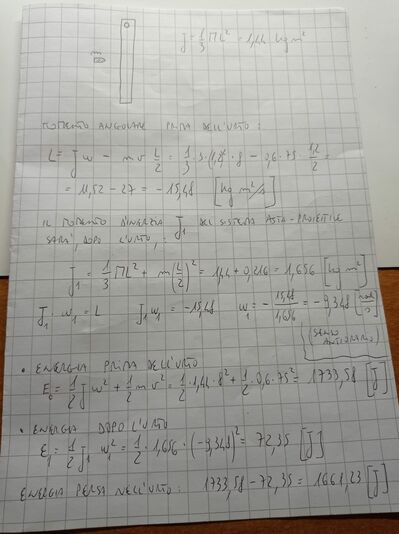 m
J = 1/3 ML² = 1,44 kg m²
MOMENTO ANGOLARE PRIMA DELL'URTO:
L = J w - m v L/2 = 1/3 · 3 · (1,2)² · 8 - 0,6 · 75 · 1,2/2 =
= 11,52 - 27 = -15,48 [kg m²/s]
IL MOMENTO D'INERZIA J1 DEL SISTEMA ASTA-PROIETTILE
SARÀ, DOPO L'URTO,:
J1 = 1/3 ML² + m(L/2)² = 1,44 + 0,216 = 1,656 [kg m²]
J1 · w1 = L J1 w1 = -15,48 w1 = - 15,48/1,656 = -9,348 [rad/s]
(SENSO ANTIORARIO)
• ENERGIA PRIMA DELL'URTO
E0 = 1/2 J w² + 1/2 m v² = 1/2 · 1,44 · 8² + 1/2 · 0,6 · 75² = 1733,58 [J]
• ENERGIA DOPO L'URTO
E1 = 1/2 J1 w1² = 1/2 · 1,656 · (-9,348)² = 72,35 [J]
ENERGIA PERSA NELL'URTO: 1733,58 - 72,35 = 1661,23 [J]